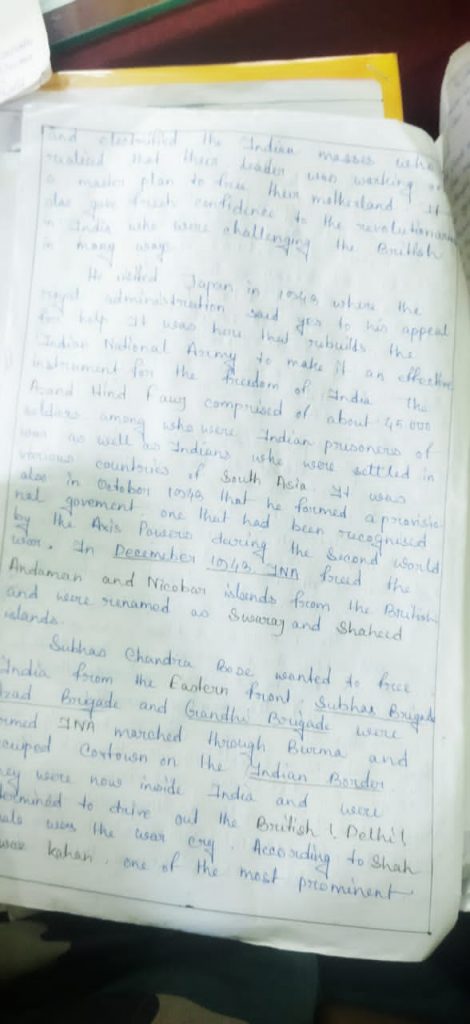 and electrified the Indian masses who
realised that their leader was working on
a master plan to free their motherland. It
also gave fresh confidence to the revolutionaries
in India who were challenging the British
in many ways.
He visited Japan in 1943 where the
royal administration said yes to his appeal
for help It was here that rebuilds the
Indian National Army to make it an effective
instrument for the freedom of India The
Azand Hind Fauj comprised of about 45000
soldiers among who were Indian prisoners of
war as well as Indians who were settled in
various countries of South Asia. It was
also in October 1943 that he formed a provisio-
nal goverment one that had been recognised
by the Axis Powers during the second world
war. In December 1943, INA freed the
Andaman and Nicobar islands from the British
and were renamed as Swaraj and Shaheed
islands.
Subhas Chandra Bose wanted to free
India from the Eastern front, Subhas Brigade
zad Brigade and Gandhi Brigade were
rmed INA marched through Burma and
ccuiped Coxtown on the Indian Border.
hey were now inside India and were
termined to drive out the British (Delhi!
halo was the war cry. According to Shah
waz kahan, one of the most prominent